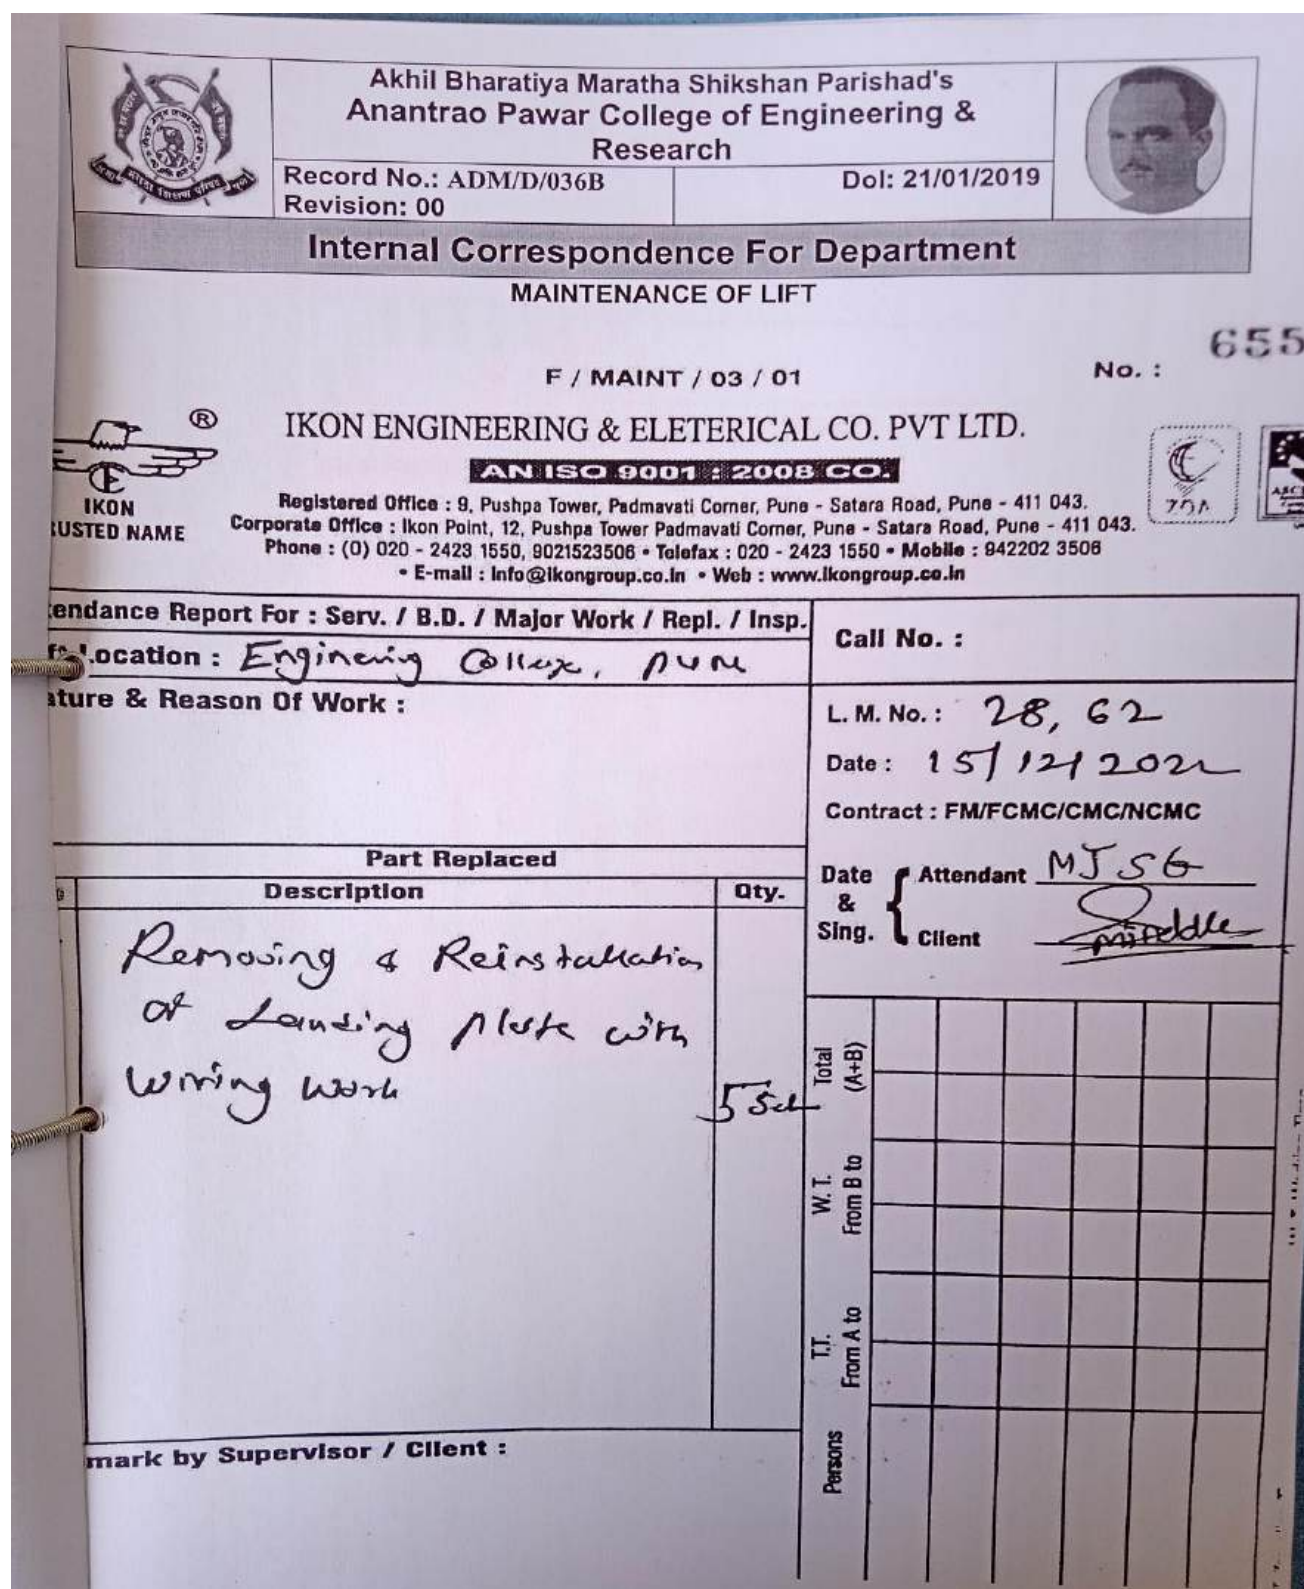 Akhil Bharatiya Maratha Shikshan Parishad's
Anantrao Pawar College of Engineering &
Research
Record No.: ADM/D/036B
Revision: 00
DoI: 21/01/2019
Internal Correspondence For Department
MAINTENANCE OF LIFT
655
No. :
F / MAINT / 03 / 01
®
IKON ENGINEERING & ELETERICAL CO. PVT LTD.
AN ISO 9001 : 2008 CO.
IKON
USTED NAME
Registered Office : 9, Pushpa Tower, Padmavati Corner, Pune - Satara Road, Pune - 411 043.
Corporate Office : Ikon Point, 12, Pushpa Tower Padmavati Corner, Pune - Satara Road, Pune - 411 043.
Phone : (0) 020 - 2423 1550, 9021523506 • Telefax : 020 - 2423 1550 • Mobile : 942202 3506
• E-mail : Info@ikongroup.co.in • Web : www.ikongroup.co.in
tendance Report For : Serv. / B.D. / Major Work / Repl. / Insp.
Call No. :
Location : Engineering College, Pune
ature & Reason Of Work :
L. M. No. : 28, 62
Date : 15/12/2022
Contract : FM/FCMC/CMC/NCMC
Part Replaced
Description Qty.
Date & Sing. { Attendant MJSG
Client
Removing & Reinstallation
of Landing plate with
wiring work 5 Set
Total (A+B)
W. T. From B to
T.T. From A to
Persons
mark by Supervisor / Client :